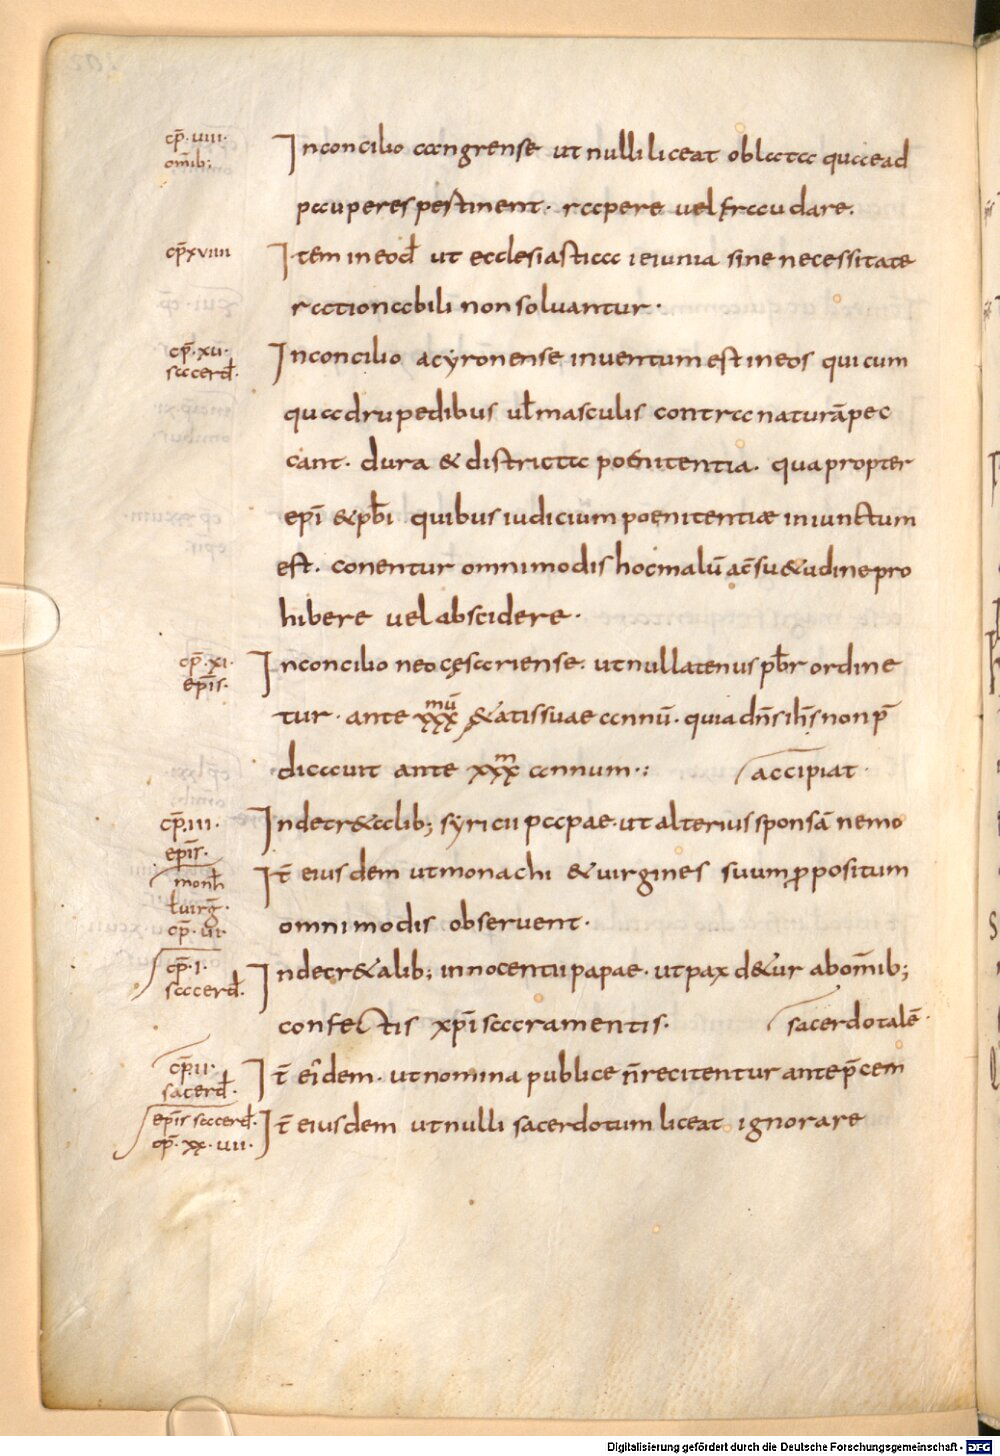 cp̄·uiiii·
omīb;
In concilio aangrense ut nulli liceat oblata quae ad
pauperes pertinent· rapere uel fraudare.
cp̄ xuiiii
Item in eod̄ ut ecclesiastica ieiunia sine necessitate
rationabili non soluantur·
cp̄·xii·
sacerd̄·
In concilio acyronense inuentum est in eos qui cum
quadrupedibus ul̄ masculis contra naturā pec
cant· dura & districta poenitentia· quapropter
epī & prb̄i quibus iudicium poenitentiæ iniunctum
est· conentur omnimodis hoc malū ac̄ su&udine pro
hibere uel abscidere·
cp̄·xi·
epīs·
In concilio neocęsariense· ut nullatenus pb̄r ordine
tur· ante xxx mū &atis suae annū· quia dn̄s ih̄s non p̄
dicauit ante xxx m annum·: accipiat·
cp̄·iii·
epīs·
In decr&alib; syricii papae· ut alterius sponsā nemo
monh̄
ł uirḡ·
cp̄·ui·
It̄ eiusdem ut monachi & uirgines suum p̱positum
omnimodis obseruent·
cp̄·i·
sacerd̄·
In decr&alib; innocentii papae· ut pax d&ur ab om̄ib;
confectis xp̄i sacramentis· sacerdotalē·
cp̄ ii·
sacerd̄·
It̄ eīdem· ut nomina publice n̄ recitentur ante p̄cem
epīs sacerd̄·
cp̄·xx·uii·
It̄ eiusdem ut nulli sacerdotum liceat ignorare
Digitalisierung gefördert durch die Deutsche Forschungsgemeinschaft - DFG